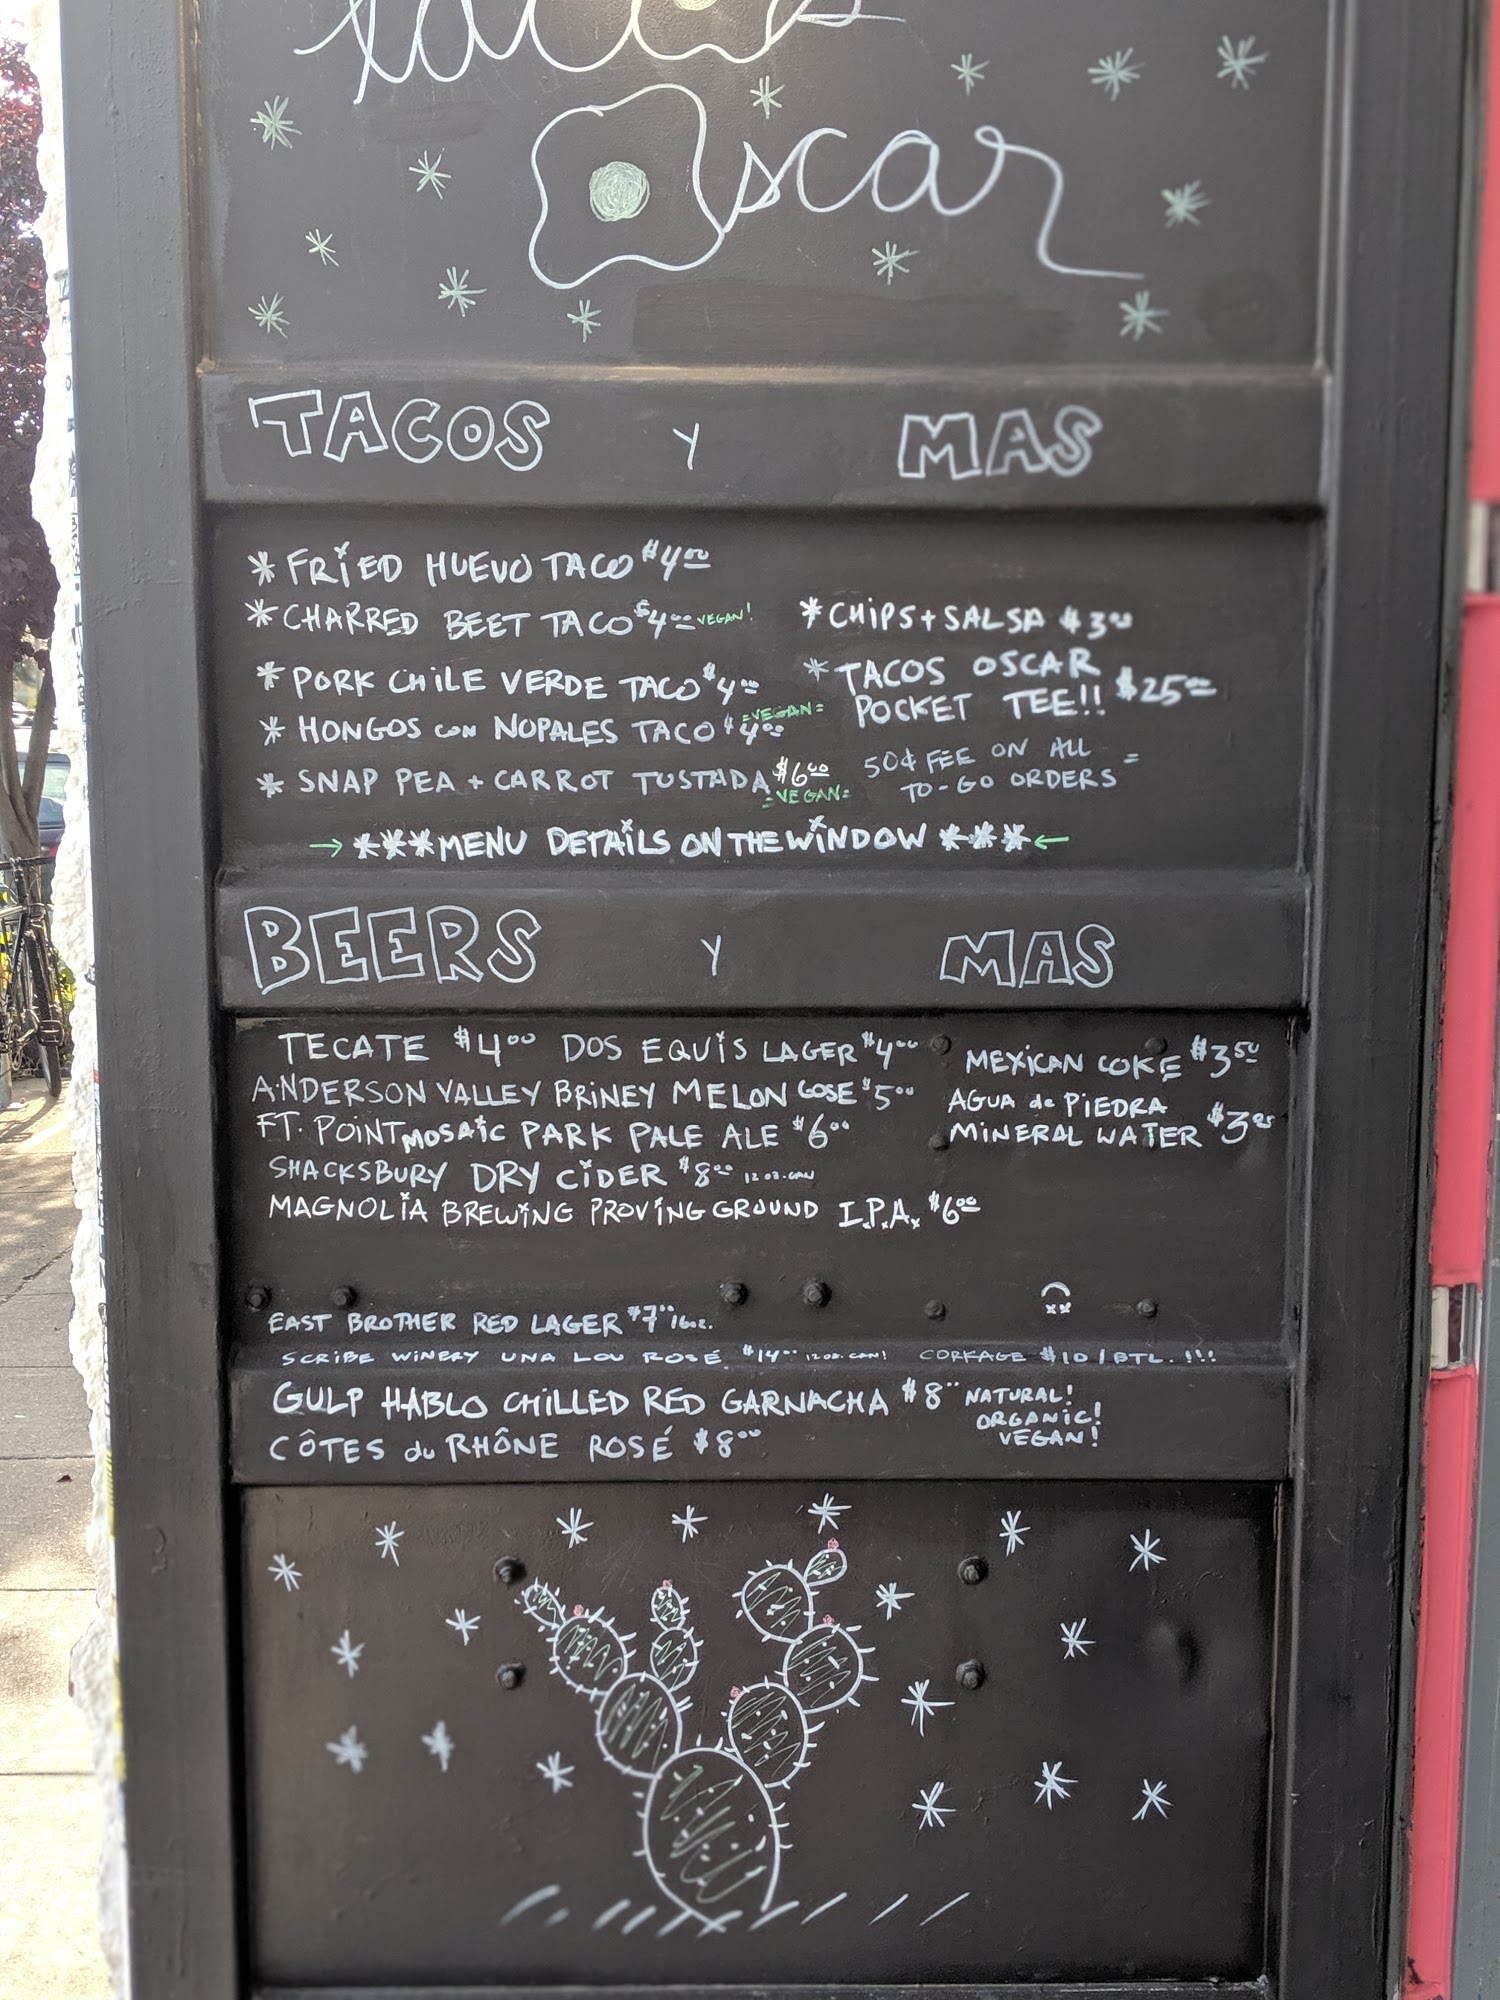 tacos
Oscar
TACOS Y MAS
* FRIED HUEVO TACO $4.00
* CHARRED BEET TACO $4.00 VEGAN!
* PORK CHILE VERDE TACO $4.00
* HONGOS CON NOPALES TACO $4.00 =VEGAN=
* SNAP PEA + CARROT TUSTADA $6.00
=VEGAN=
* CHIPS + SALSA $3.00
* TACOS OSCAR
POCKET TEE!! $25.00
50¢ FEE ON ALL
TO-GO ORDERS =
→ ***MENU DETAILS ON THE WINDOW *** ←
BEERS Y MAS
TECATE $4.00 DOS EQUIS LAGER $4.00
ANDERSON VALLEY BRINEY MELON GOSE $5.00
FT. POINT MOSAIC PARK PALE ALE $6.00
SHACKSBURY DRY CIDER $8.00 12 OZ. CAN
MAGNOLIA BREWING PROVING GROUND I.P.A. $6.00
MEXICAN COKE $3.50
AGUA de PIEDRA
MINERAL WATER $3.25
EAST BROTHER RED LAGER $7.00 16oz.
SCRIBE WINERY UNA LOU ROSÉ $14.00 12 OZ. CAN! CORKAGE $10 / BTL. !!!
GULP HABLO CHILLED RED GARNACHA $8.00 NATURAL!
ORGANIC!
VEGAN!
CÔTES du RHÔNE ROSÉ $8.00